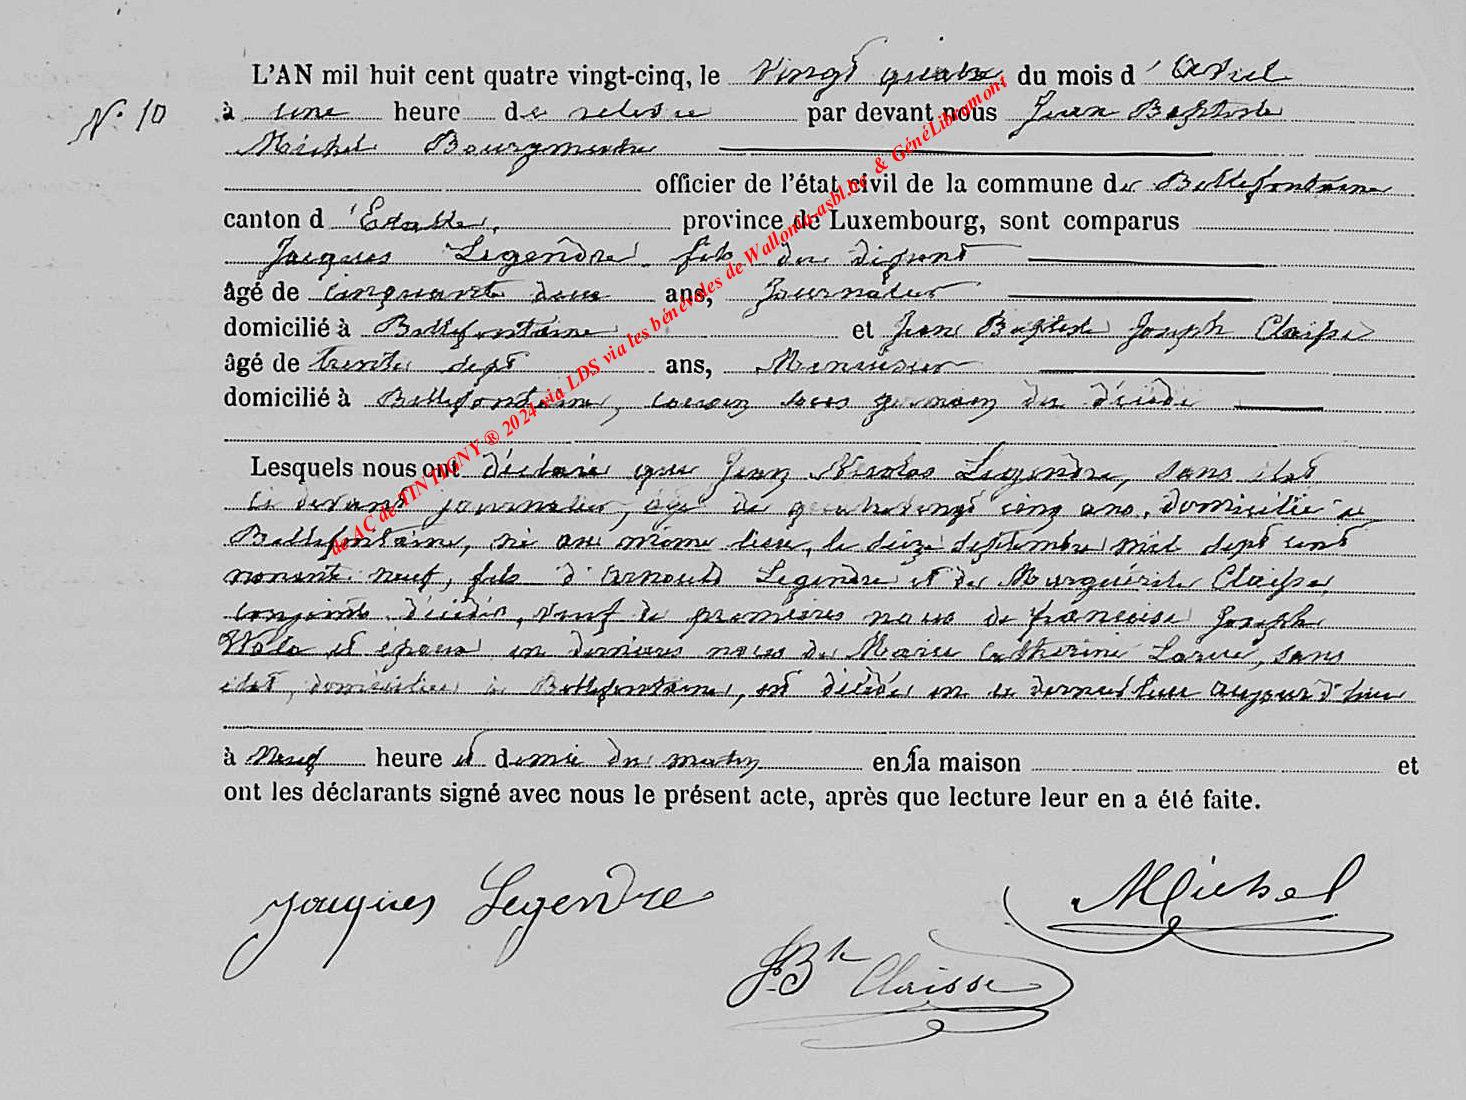 L'AN mil huit cent quatre vingt-cinq, le vingt quatre du mois d'Avril
N° 10
à une heure de relevée par devant nous Jean Baptiste
Michel Bourgmestre
officier de l'état civil de la commune de Bellefontaine
canton d'Etalle, province de Luxembourg, sont comparus
Jacques Legendre fils du défunt
âgé de cinquante deux ans, Journalier
domicilié à Bellefontaine et Jean Baptiste Joseph Claisse
âgé de trente sept ans, Menuisier
domicilié à Bellefontaine, cousin sous germain du décédé
Lesquels nous ont déclaré que Jean Nicolas Legendre, sans état
ci devant journalier, âgé de quatre vingt cinq ans, domicilié à
Bellefontaine, né au même lieu, le seize septembre mil sept cent
nonante neuf, fils d'Arnould Legendre et de Marguérite Claisse,
conjoints décédés, veuf de premières noces de françoise Joseph
Wala et époux en dernières noces de Marie Catherine Larue, sans
état, domiciliée à Bellefontaine, est décédé en ce dernier lieu aujourd'hui
à Neuf heure et demie du matin en sa maison et
ont les déclarants signé avec nous le présent acte, après que lecture leur en a été faite.
Jacques Legendre
Michel
J-Bte Claisse
de AC de TINTIGNY ® 2024 via LDS via les bénévoles de Wallonia-asbl.be & GénéLibramont